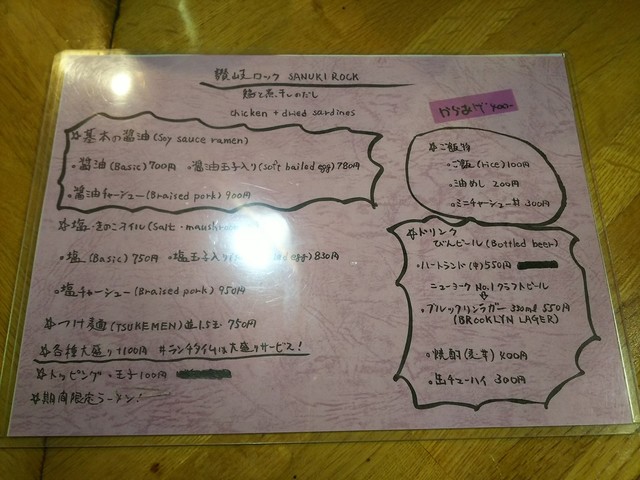 讃岐ロック SANUKI ROCK
鶏と煮干しのだし
chicken + dried sardines
からあげ 400-
☆基本の醤油 (Soy sauce ramen)
・醤油 (Basic) 700円 ・醤油玉子入り (soft bailed egg) 780円
・醤油チャーシュー (Braised pork) 900円
☆塩・きのこオイル (Salt・
・塩 (Basic) 750円 ・塩玉子入り egg) 830円
・塩チャーシュー (Braised pork) 950円
☆つけ麺 (TSUKEMEN) 並1.5玉 750円
☆各種大盛り+100円 #ランチタイムは大盛りサービス!
☆トッピング・玉子100円
☆期間限定ラーメン!
☆ご飯物
・ご飯 (rice) 100円
・油めし 200円
・ミニチャーシュー丼 300円
☆ドリンク
びんビール (Bottled beer)
・ハートランド (中) 550円
ニューヨーク No.1クラフトビール
・ブルックリンラガー 330ml 550円
(BROOKLYN LAGER)
・焼酎 (麦・芋) 400円
・缶チューハイ 300円